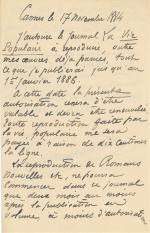 Cannes le 17 Novembre 1884
J'autorise le journal La Vie
Populaire à reproduire, outre
mes œuvres déjà parues, tout
ce que je publierai jusqu'au
1er Janvier 1886.
A cette date la présente
autorisation cessera d'être
valable, et devra être renouvelée
Toute reproduction faite par
la vie populaire me sera
payée à raison de dix centimes
la ligne.
La reproduction de Romans
Nouvelles etc, ne pourra
commencer dans ce journal
que deux mois au moins
après la publication en
volume, à moins d'autorisation